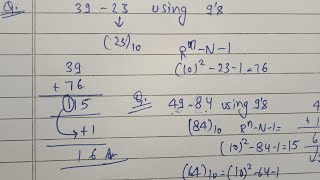 Q. 39 - 23 using 9's
↓
(23)₁₀ Rⁿ-N-1
39 (10)²-23-1=76
+ 76
115 Q. 49-84 using 9's
+1 (84)₁₀ Rⁿ-N-1=
16 (10)²-84-1=15
(64)₁₀=(10)²-64-1